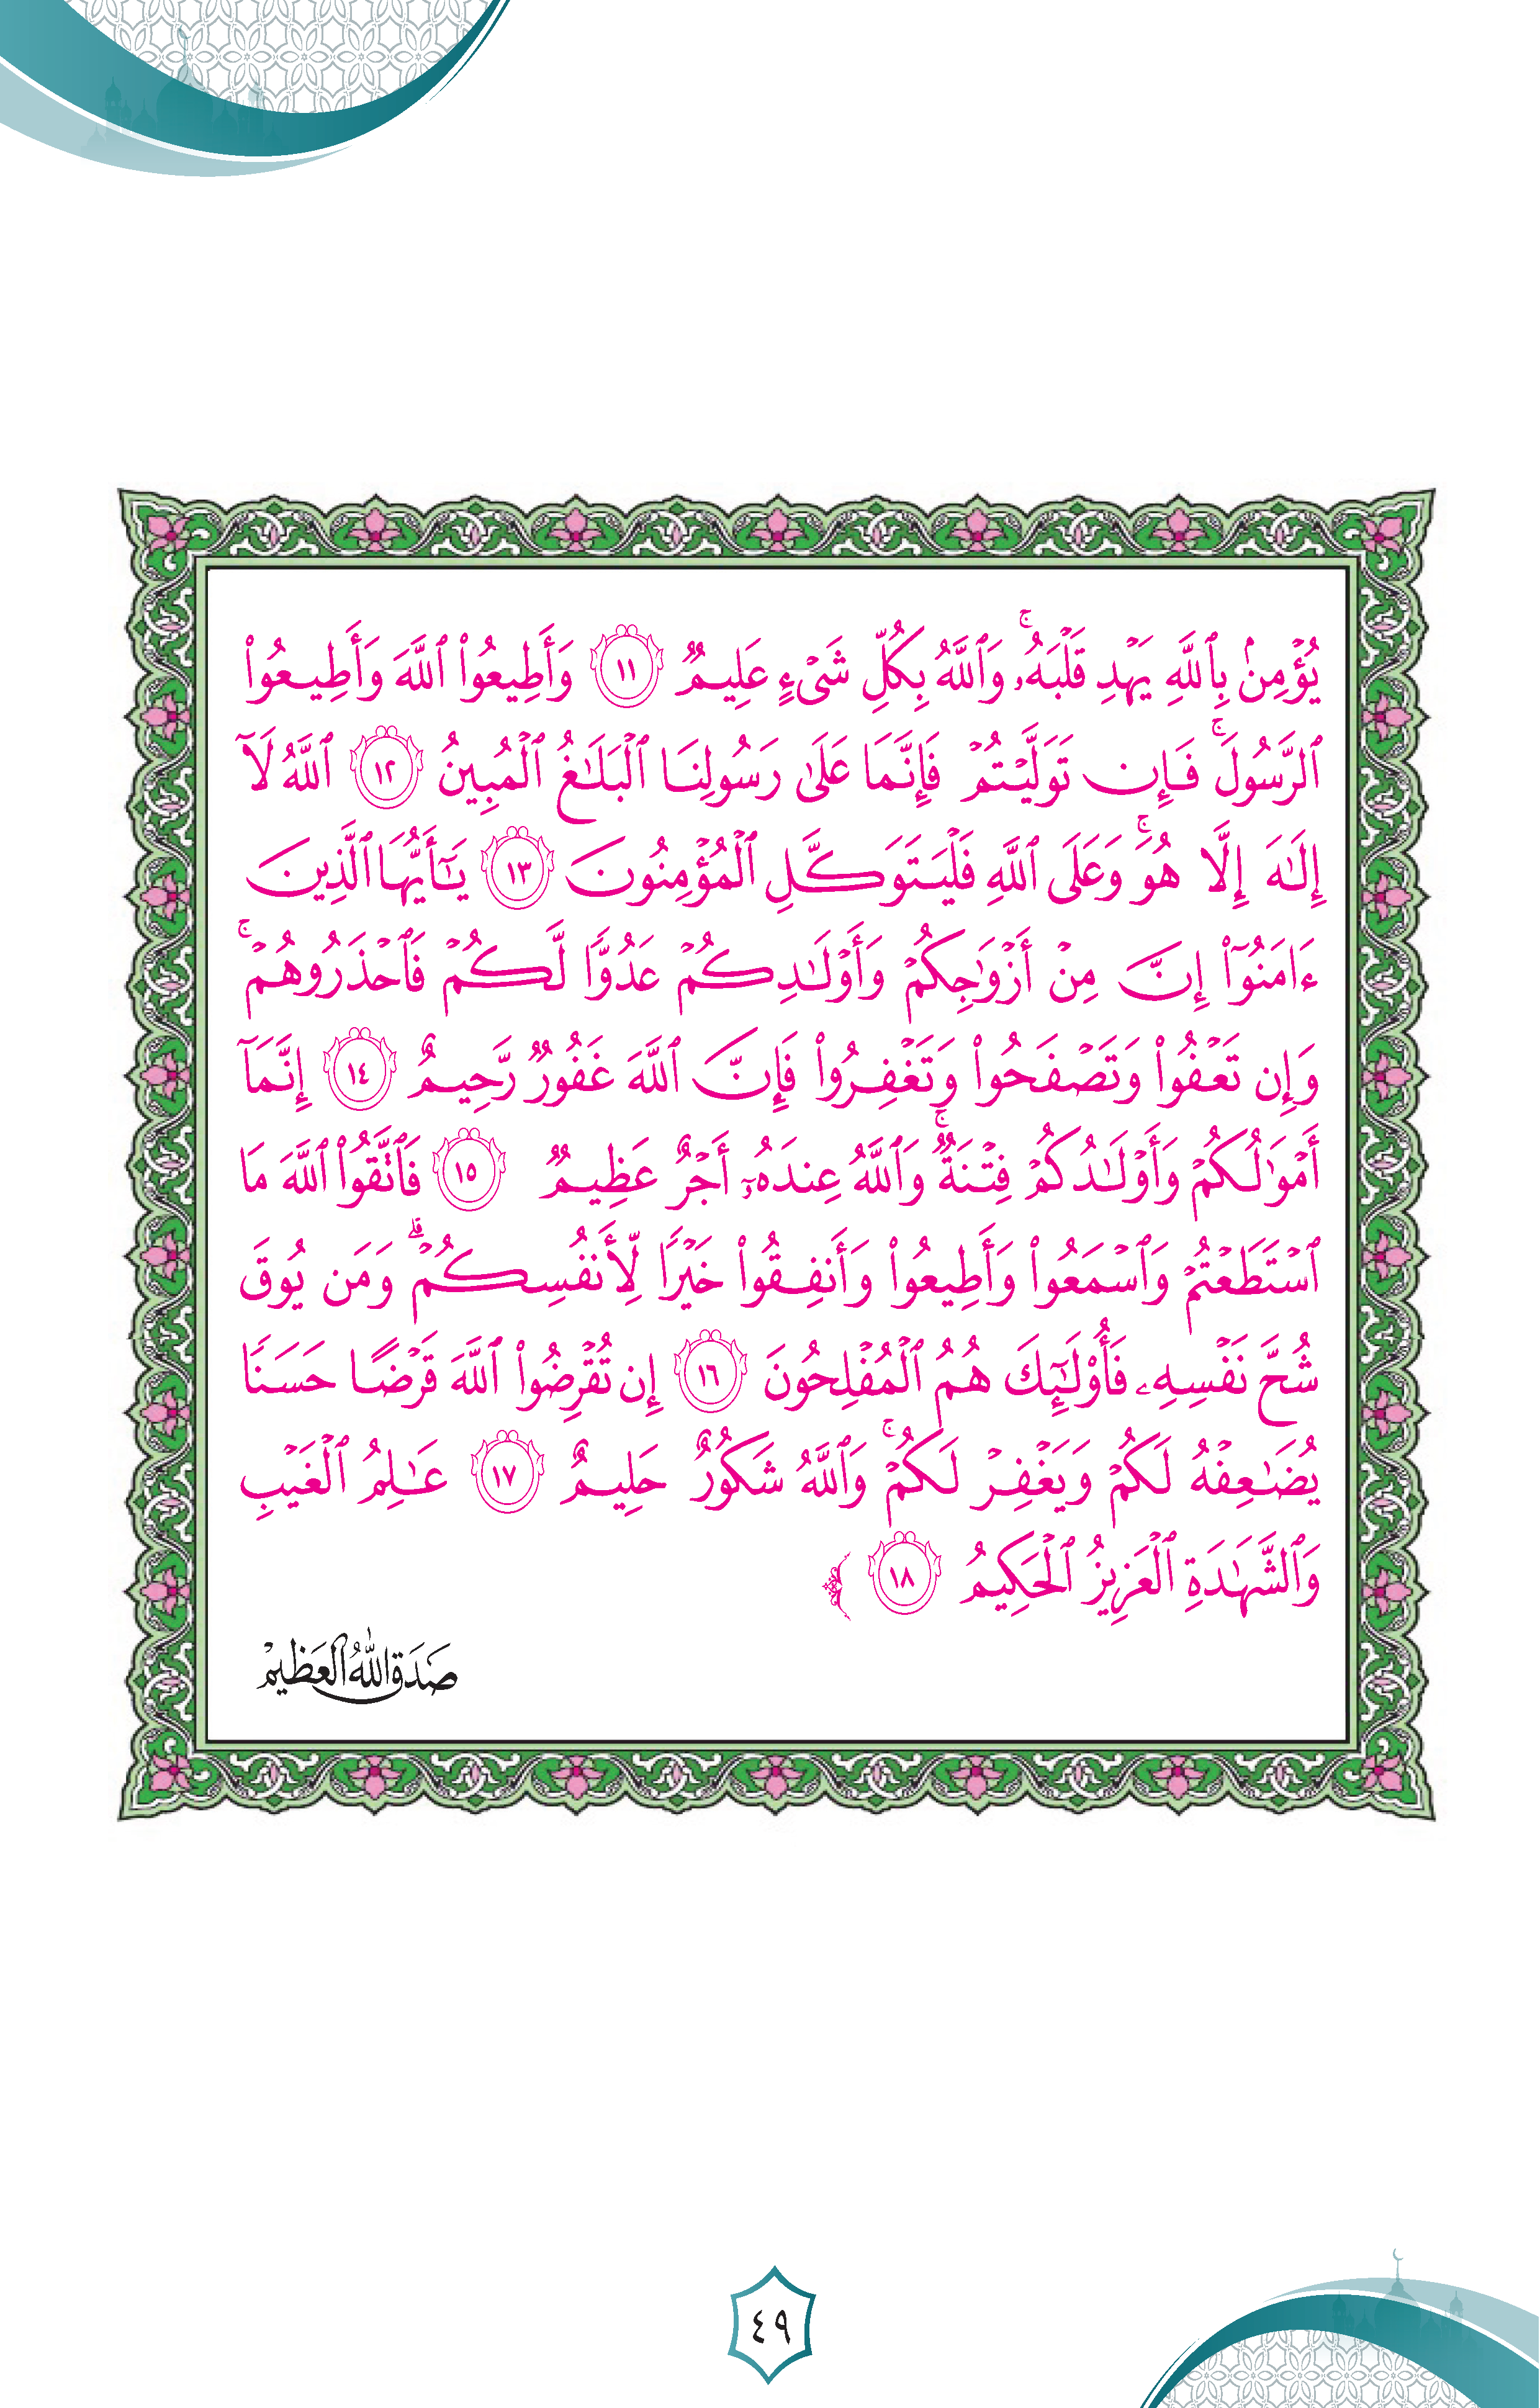 يُؤْمِنۢ بِٱللَّهِ يَهْدِ قَلْبَهُۥۚ وَٱللَّهُ بِكُلِّ شَىْءٍ عَلِيمٌ ١١ وَأَطِيعُوا۟ ٱللَّهَ وَأَطِيعُوا۟
ٱلرَّسُولَۚ فَإِن تَوَلَّيْتُمْ فَإِنَّمَا عَلَىٰ رَسُولِنَا ٱلْبَلَـٰغُ ٱلْمُبِينُ ١٢ ٱللَّهُ لَآ
إِلَـٰهَ إِلَّا هُوَۚ وَعَلَى ٱللَّهِ فَلْيَتَوَكَّلِ ٱلْمُؤْمِنُونَ ١٣ يَـٰٓأَيُّهَا ٱلَّذِينَ
ءَامَنُوٓا۟ إِنَّ مِنْ أَزْوَٰجِكُمْ وَأَوْلَـٰدِكُمْ عَدُوًّا لَّكُمْ فَٱحْذَرُوهُمْۚ
وَإِن تَعْفُوا۟ وَتَصْفَحُوا۟ وَتَغْفِرُوا۟ فَإِنَّ ٱللَّهَ غَفُورٌ رَّحِيمٌ ١٤ إِنَّمَآ
أَمْوَٰلُكُمْ وَأَوْلَـٰدُكُمْ فِتْنَةٌۚ وَٱللَّهُ عِندَهُۥٓ أَجْرٌ عَظِيمٌ ١٥ فَٱتَّقُوا۟ ٱللَّهَ مَا
ٱسْتَطَعْتُمْ وَٱسْمَعُوا۟ وَأَطِيعُوا۟ وَأَنفِقُوا۟ خَيْرًا لِّأَنفُسِكُمْۗ وَمَن يُوقَ
شُحَّ نَفْسِهِۦ فَأُو۟لَـٰٓئِكَ هُمُ ٱلْمُفْلِحُونَ ١٦ إِن تُقْرِضُوا۟ ٱللَّهَ قَرْضًا حَسَنًا
يُضَـٰعِفْهُ لَكُمْ وَيَغْفِرْ لَكُمْۚ وَٱللَّهُ شَكُورٌ حَلِيمٌ ١٧ عَـٰلِمُ ٱلْغَيْبِ
وَٱلشَّهَـٰدَةِ ٱلْعَزِيزُ ٱلْحَكِيمُ ١٨ ﴾
صَدَقَ اللهُ العَظِيمْ
٤٩